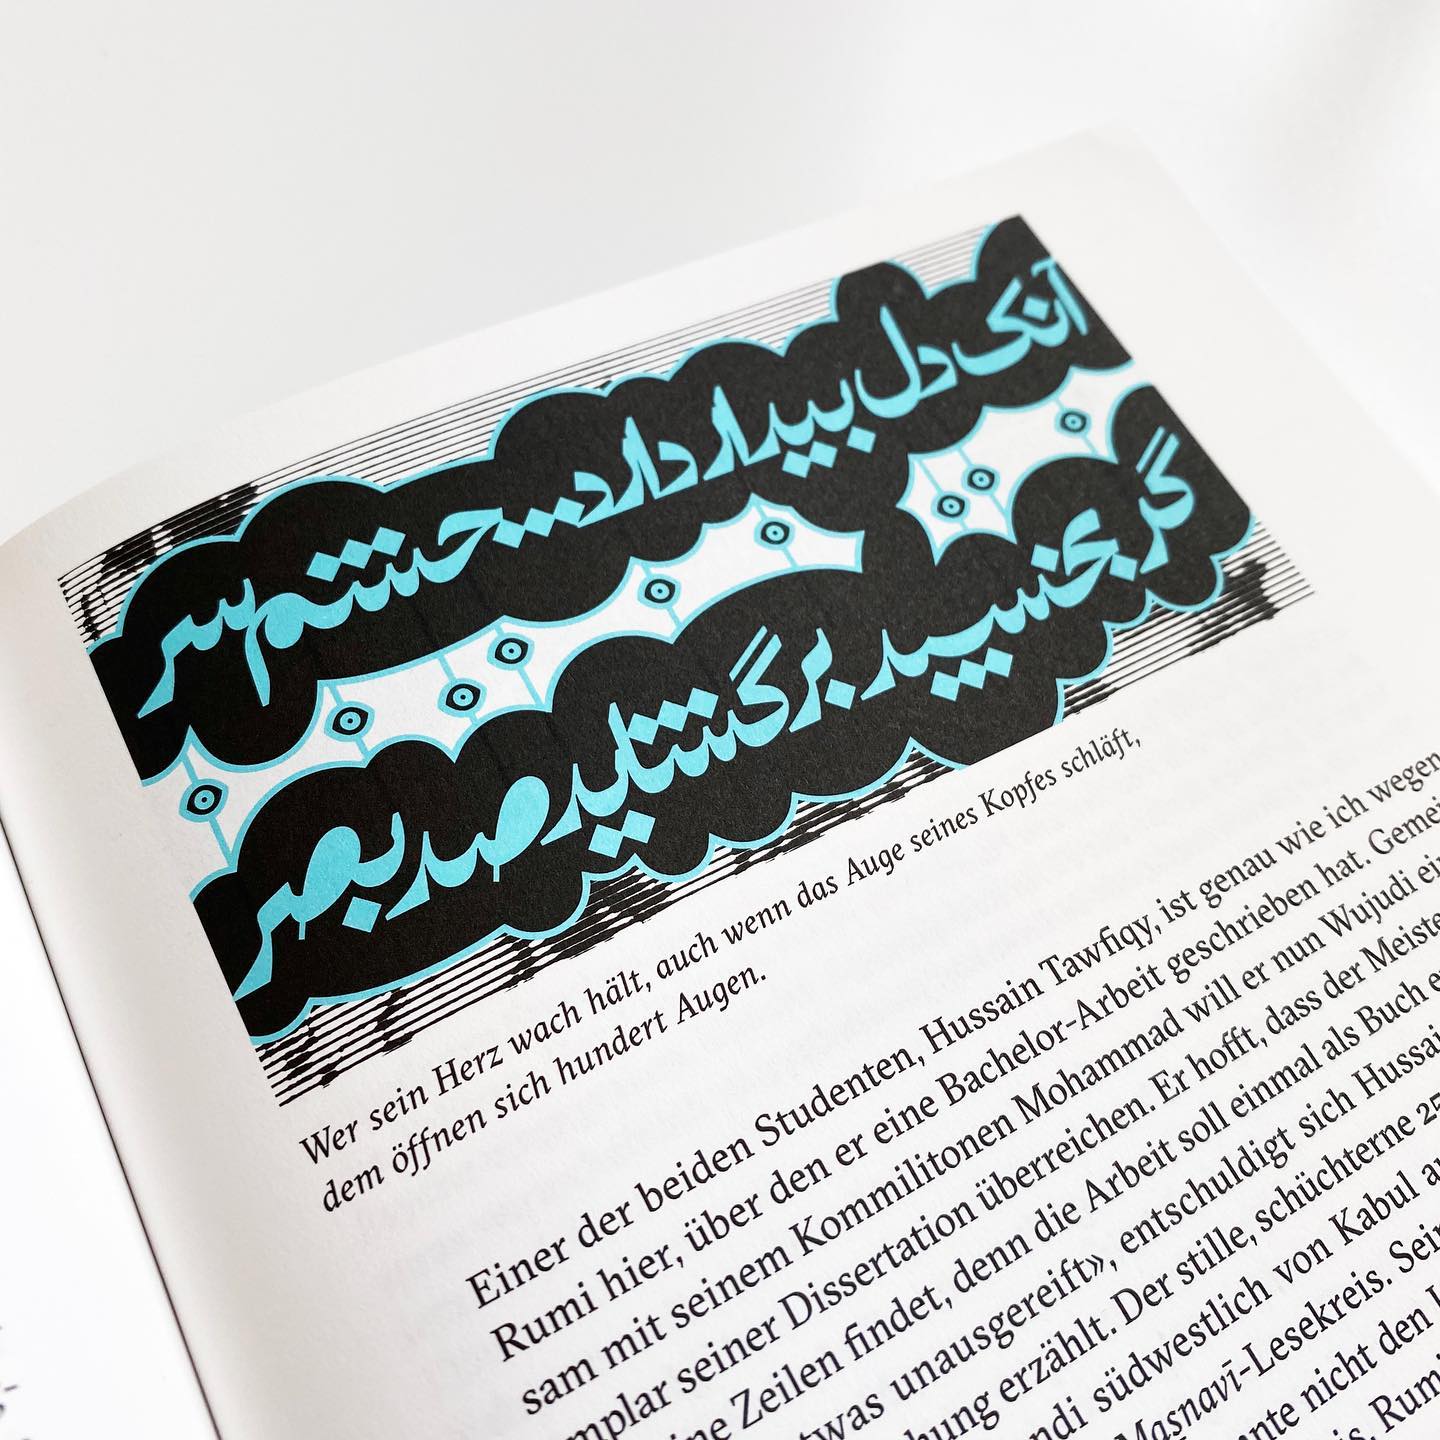 آنک دل بیدار دارد چشم سر
گر بخسپد بر گشاید صد بصر
Wer sein Herz wach hält, auch wenn das Auge seines Kopfes schläft,
dem öffnen sich hundert Augen.
Einer der beiden Studenten, Hussain Tawfiqy, ist genau wie ich wegen
Rumi hier, über den er eine Bachelor-Arbeit geschrieben hat.
sam mit seinem Kommilitonen Mohammad will er nun Wujudi
seiner Dissertation überreichen. Er hofft, dass der Meister
Zeilen findet, denn die Arbeit soll einmal als Buch
etwas unausgereift», entschuldigt sich Hussain
erzählt. Der stille, schüchterne
südwestlich von Kabul
Maṣnavī-Lesekreis.
nicht den
Rumi